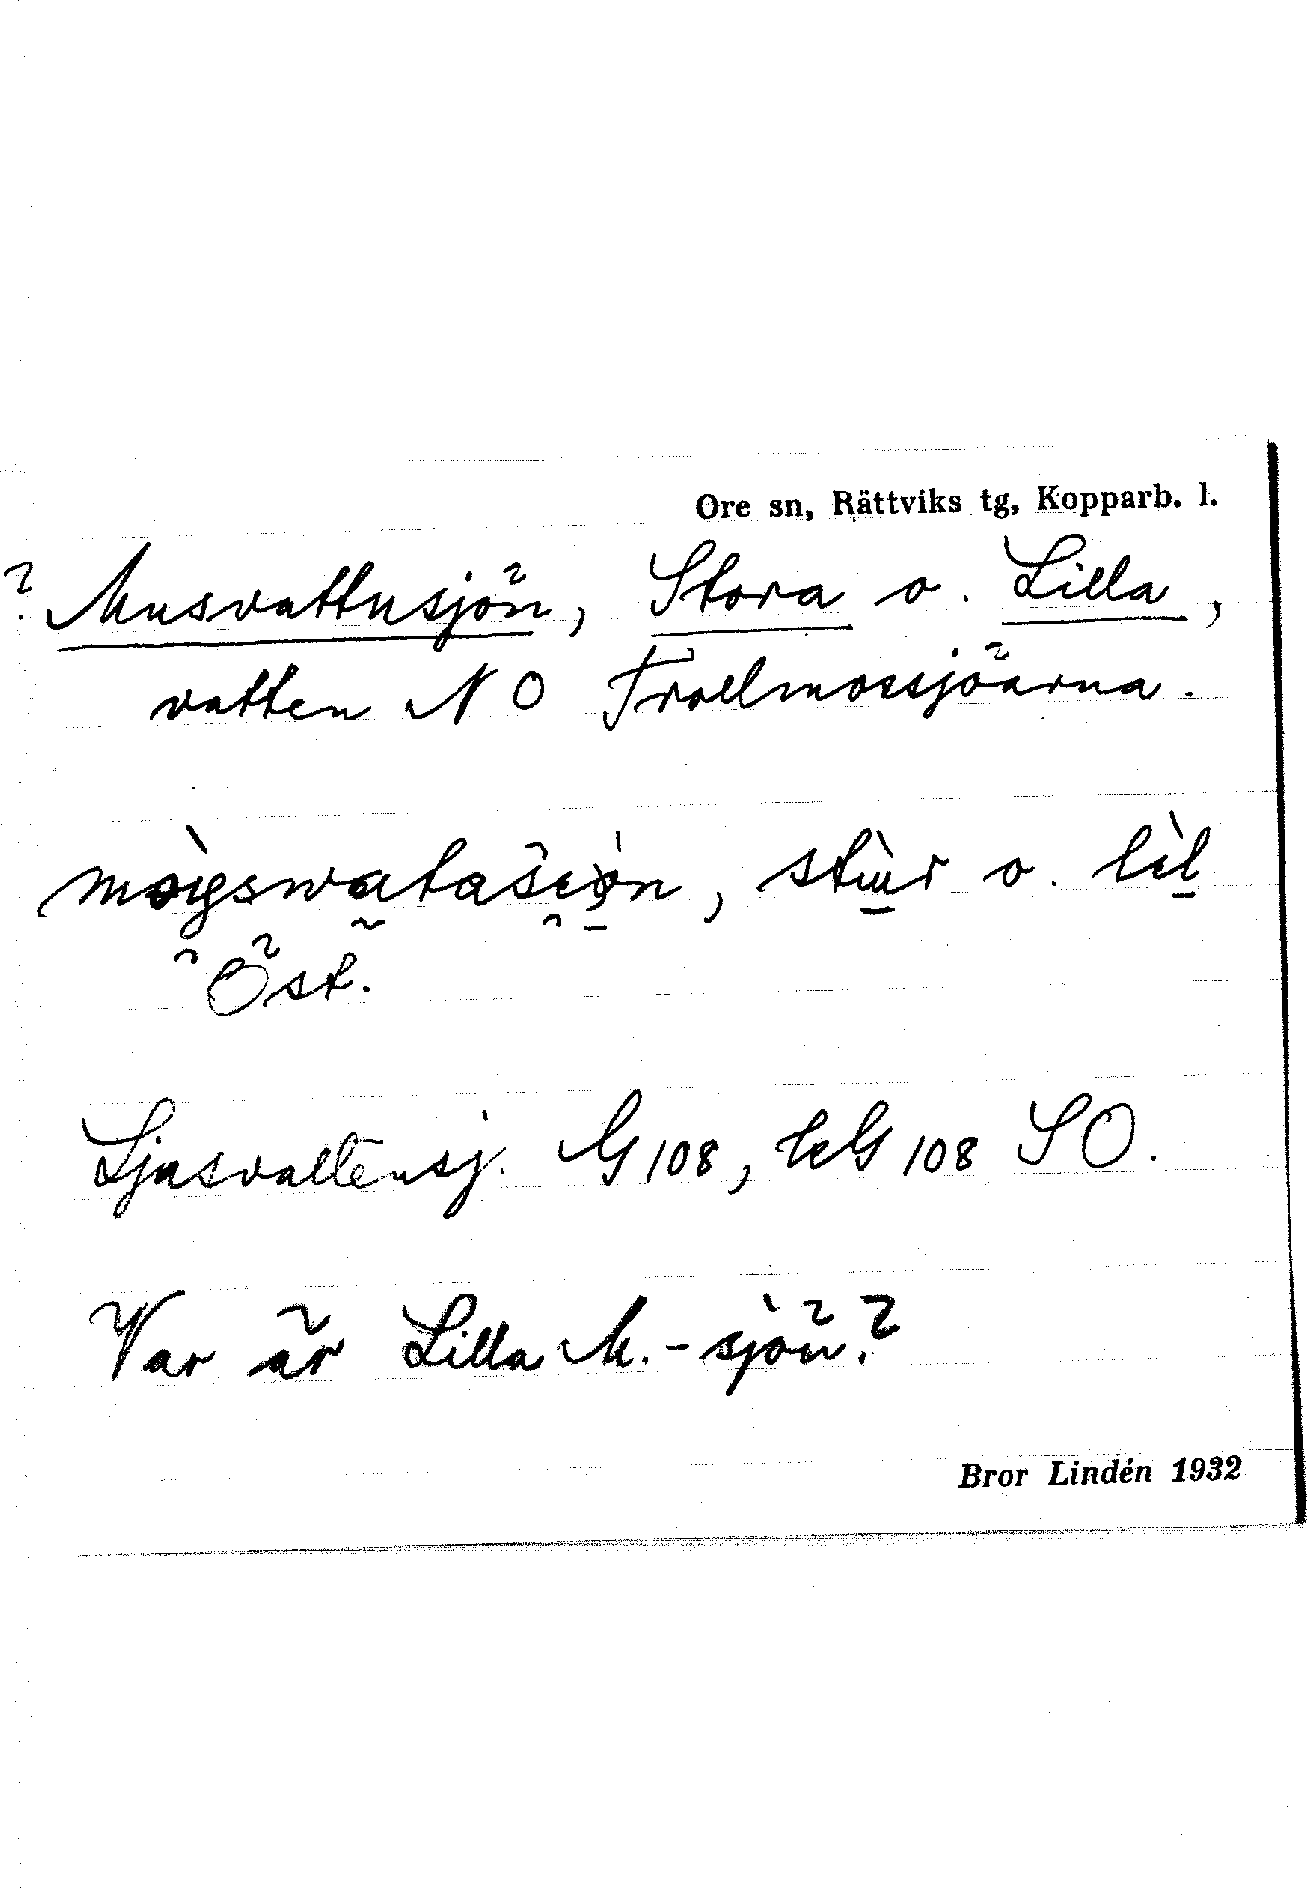 Ore sn, Rättviks tg, Kopparb. l.
? Musvattusjön, Stora o. Lilla,
vatten NO Trollmossjöarna.
stùr o. lìl
Öst.
Ljusvattensj. G 108, leG 108 SO.
Var är Lilla M.-sjön?
Bror Lindén 1932